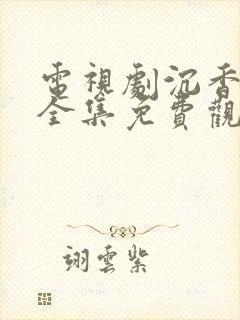 電視劇沉香
全集免費觀
翊雲紫